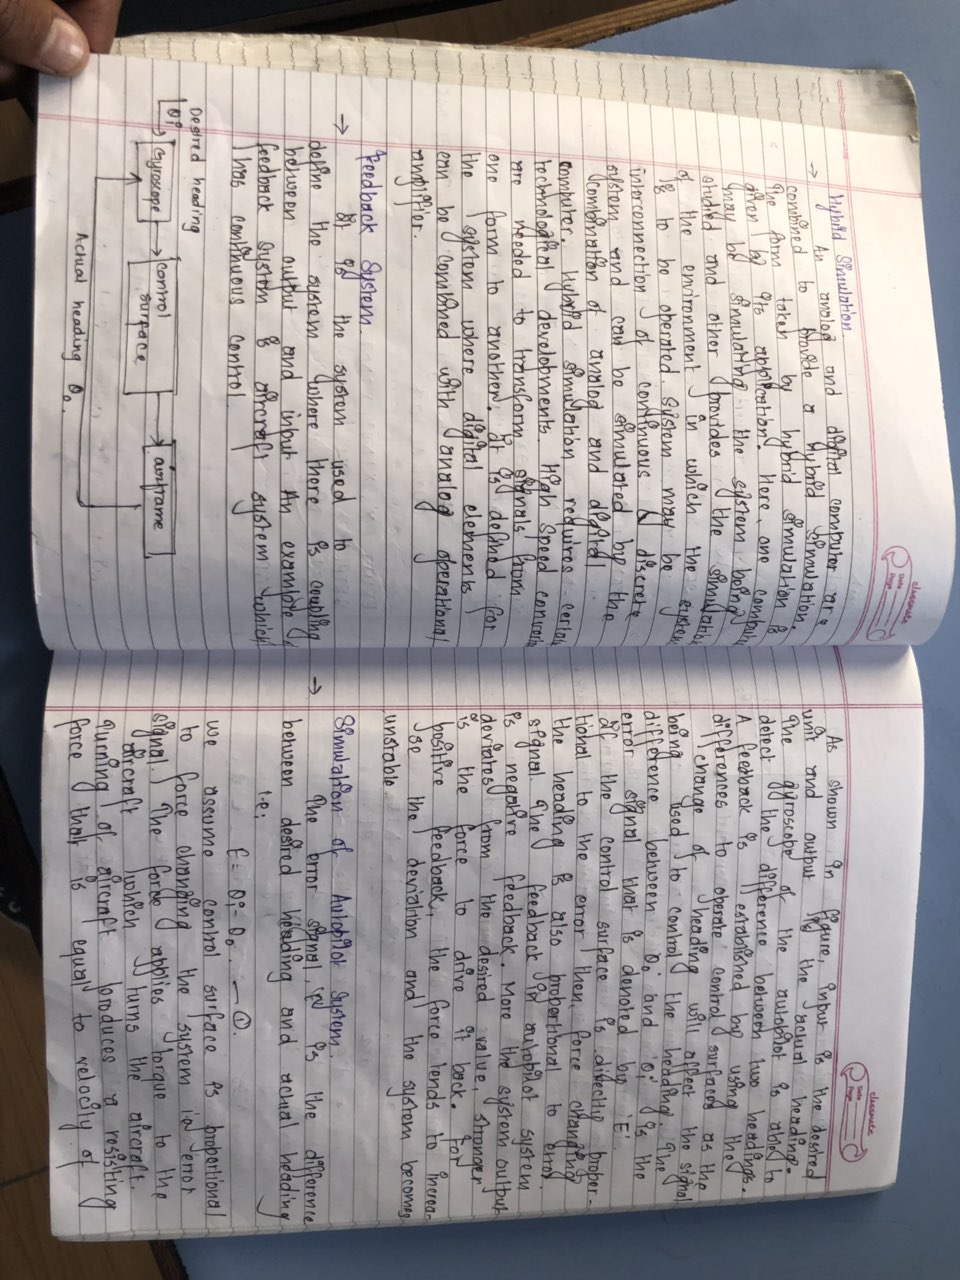 classmate
Date
Page
Hybrid Simulation.
→ An analog and digital computer are
combined to provide a hybrid simulation.
The form taken by hybrid simulation is
given by its application. Here, one computer
may be simulating the system being
studied and other provides the simulation
of the environment in which the system
is to be operated. System may be
interconnection of continuous & discrete
system and can be simulated by the
combination of analog and digital
computer. Hybrid simulation requires certain
technological developments. High speed converter
are needed to transform signals from
one form to another. It is defined for
the system where digital elements
can be combined with analog operational
amplifier.
Feedback System.
→ It is the system used to
define the system where there is coupling
between output and input. An example of
feedback system is aircraft system which
has continuous control.
Desired heading
θi → Gyroscope → control surface → airframe
Actual heading θo.
classmate
Date
Page
As shown in figure, input is the desired
unit and output is the actual heading.
The gyroscope of the autopilot is able to
detect the difference between two headings.
A feedback is established by using the
differences to operate control surfaces as the
change of heading will affect the signal
being used to control the heading. The
difference between θo and θi is the
error signal that is denoted by 'E'.
If the control surface is directly propor-
tional to the error then force changing
the heading is also proportional to error
signal. The feedback in autopilot system
is negative feedback. More the system output
deviates from the desired value, stronger
is the force to drive it back. For
positive feedback, the force tends to increa-
se the deviation and the system becomes
unstable.
Simulation of Autopilot System.
→ The error signal, is the difference
between desired heading and actual heading
i.e;
E = θi - θo. — ①.
we assume control surface is propotional
to force changing the system in error
signal. The force applies torque to the
aircraft which turns the aircraft.
Turning of aircraft produces a resisting
force that is equal to velocity of